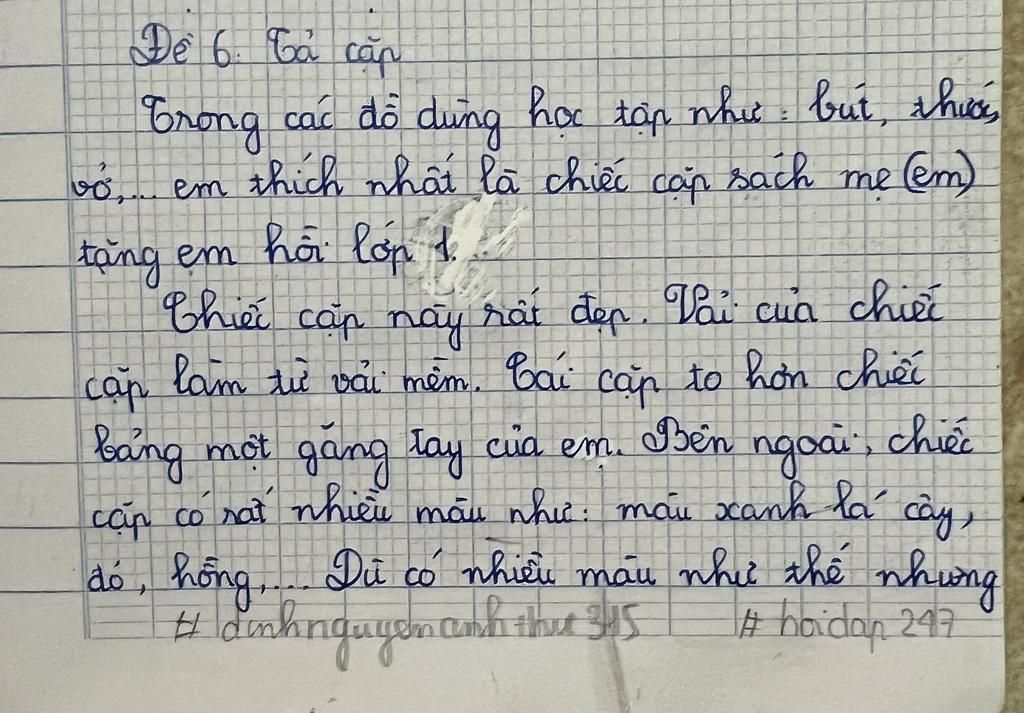 Đề 6. Tả cặp
Trong các đồ dùng học tập như: bút, thước,
vở,... em thích nhất là chiếc cặp sách mẹ (em)
tặng em hồi lớp 1.
Chiếc cặp này rất đẹp. Vải của chiếc
cặp làm từ vải mềm. Cái cặp to hơn chiếc
bảng một găng tay của em. Bên ngoài, chiếc
cặp có rất nhiều màu như: màu xanh lá cây,
đỏ, hồng,... Dù có nhiều màu như thế nhưng
# dinhnguyenanhthu 345 # hoidap 247